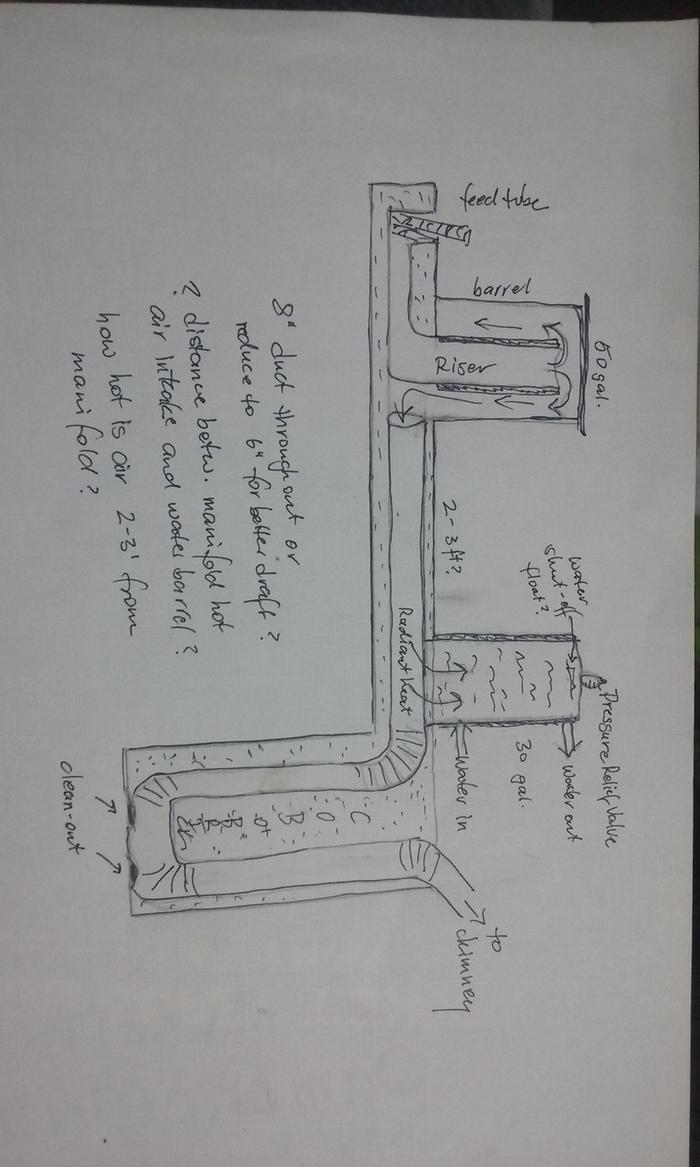 feed tube
barrel
50 gal.
Riser
2-3 ft?
water
shut-off
float?
Pressure Relief Valve
Water out
30 gal.
Water in
Radiant Heat
to
chimney
C
O
B
clean-out
8" duct throughout or
reduce to 6" for better draft?
? distance betw. manifold hot
air intake and water barrel?
how hot is air 2-3' from
manifold?